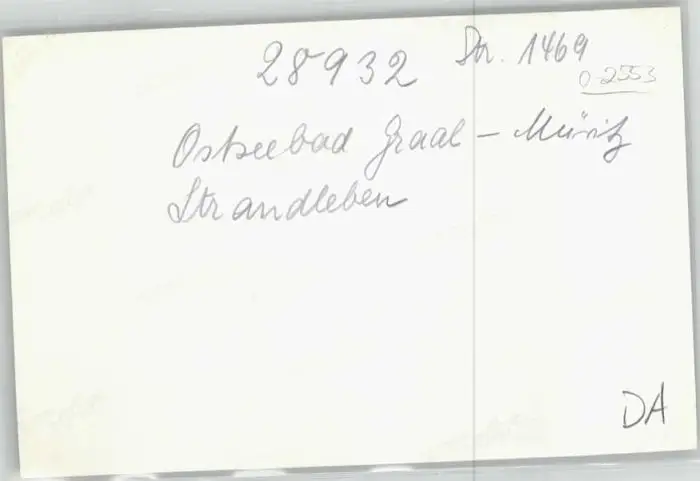 28932 Str. 1469
0-2553
Ostseebad Graal - Müritz
Strandleben
DA